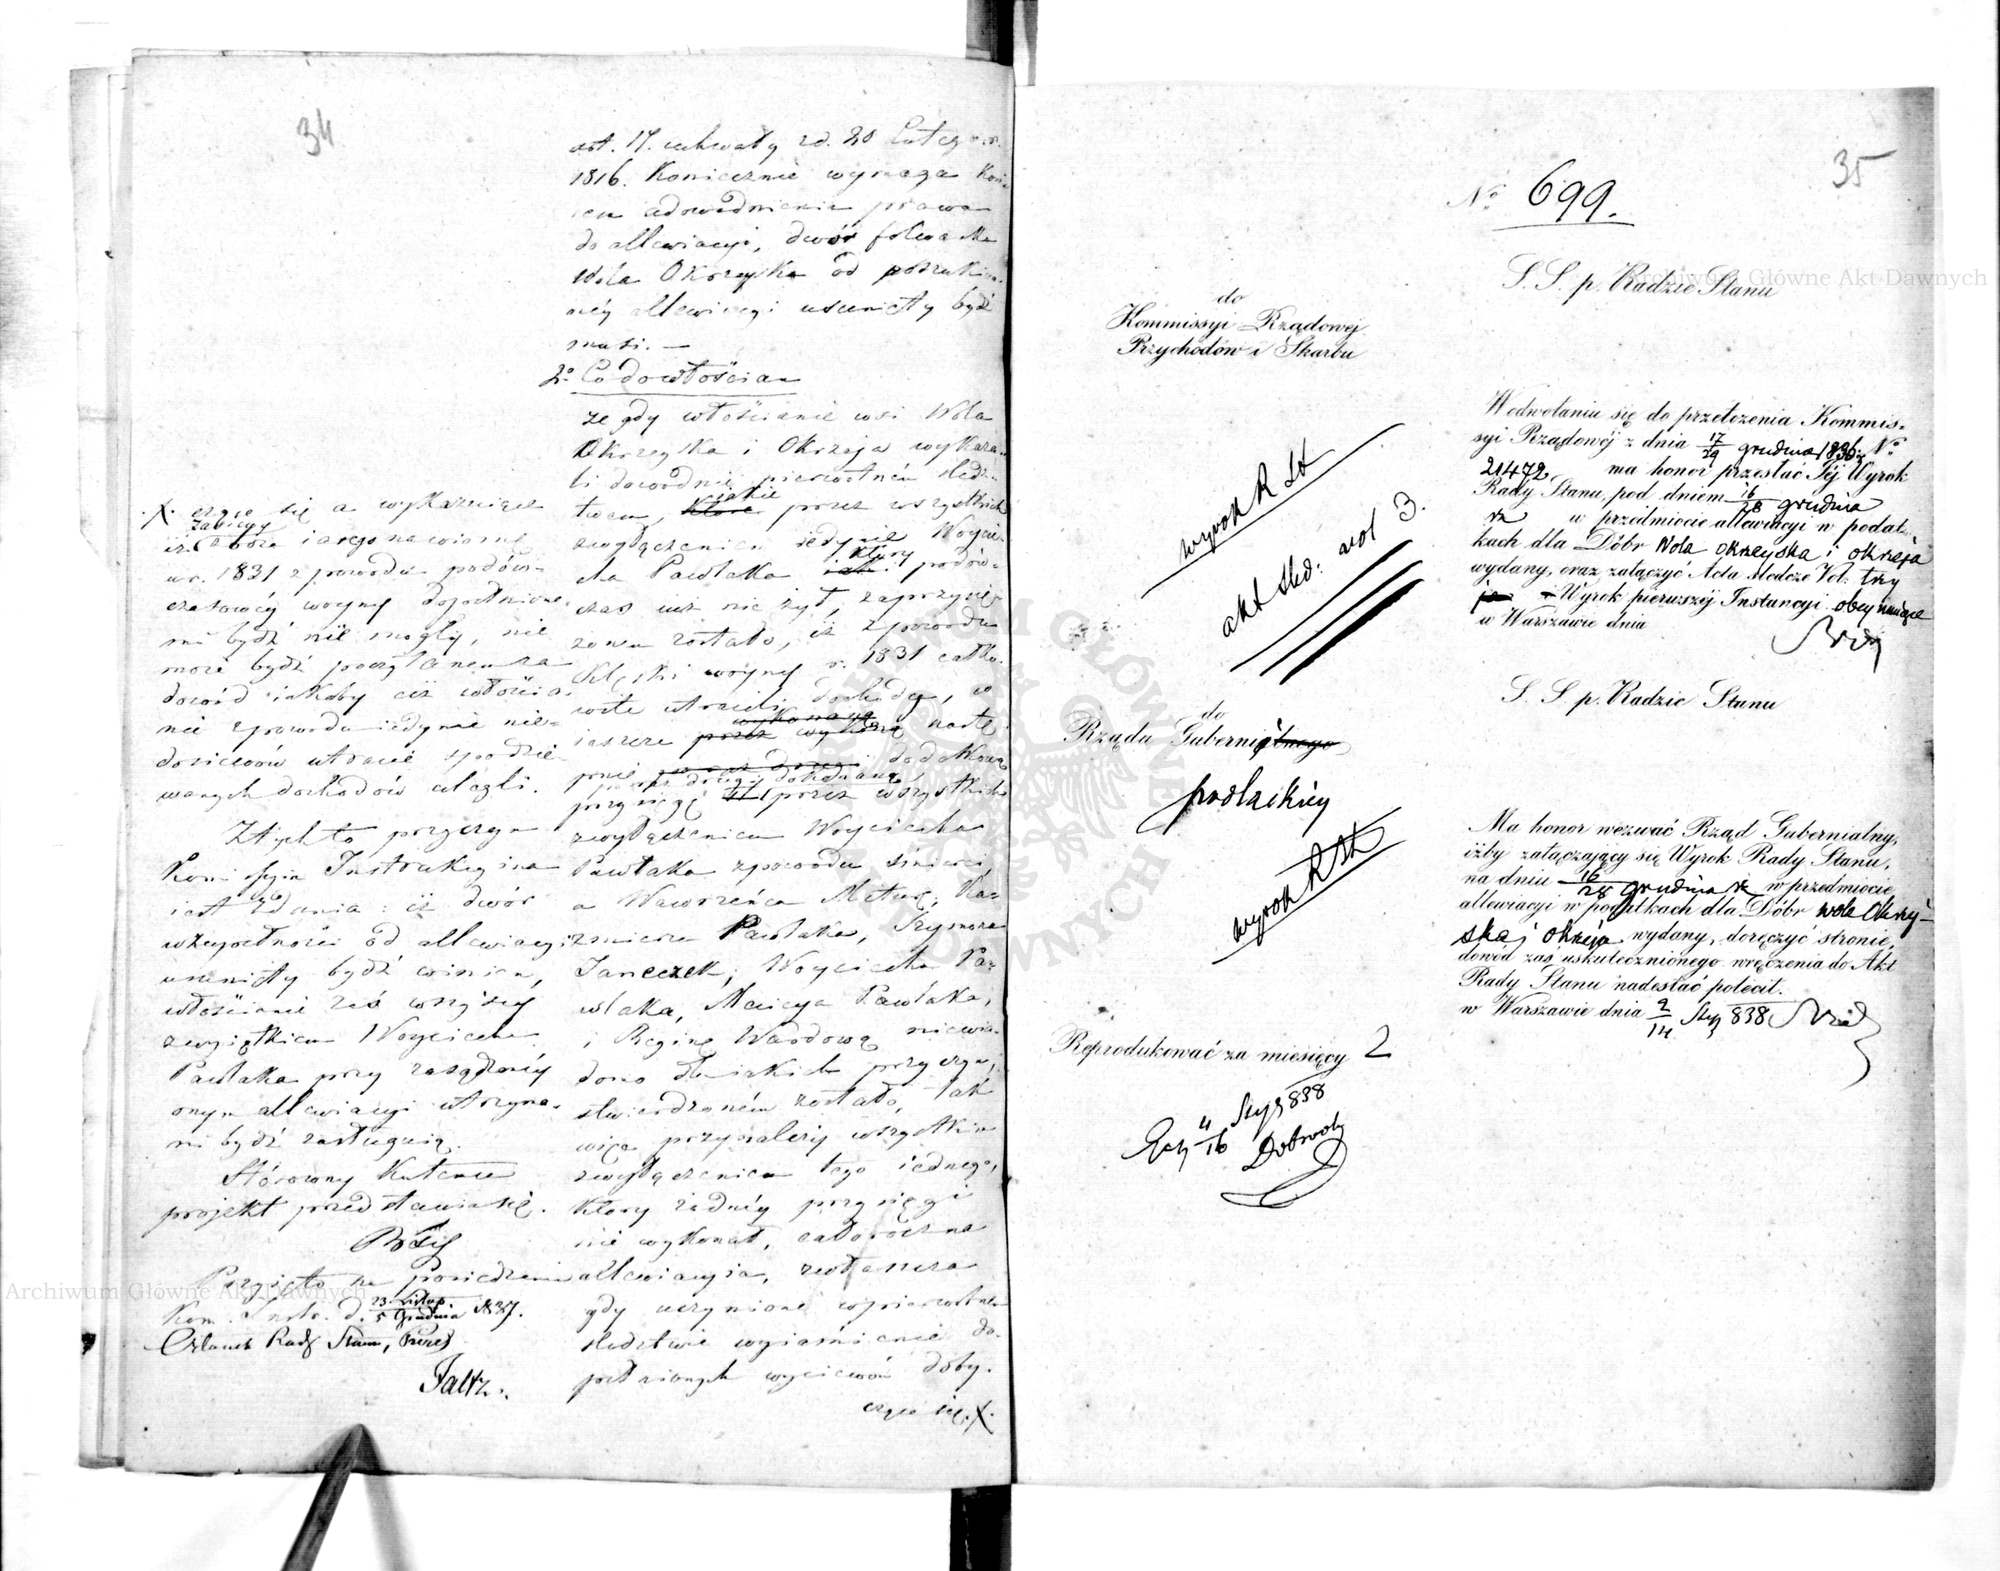 34
art. 17. uchwały z d. 20 Lutego r.
1816. Koniecznie wymaga Koń-
cem udowodnienia prawa
do allewiacyi, dwór folwarku
Wola Okrzeyska od poszukiwa-
néy allewiacyi usunięty bydź
musi. —
2o. Co do włościan
że gdy włościanie wsi Wola
Okrzeyska i Okrzeja wykaza-
li dowodnie pierwotném śledz-
twem, które jakie przez wszystkich
z wyłączeniem jedynie Woycie-
cha Pawlaka który podów-
czas już nie żył, zaprzysię-
żonem zostało, iż z powodu
klęski wojny r. 1831 całko-
wite utracili dochody, w
jeszcze wykonaną nastę-
pnie dodatkową
przez drugi dokonaną
przysięgę przez wszystkich
z wyłączeniem Woyciecha
Pawlaka z powodu śmierci
a Wawrzeńca Metur, Ka-
zmierza Pawlaka, Szymona
Janeczek, Woyciecha Pa-
wlaka, Macieja Pawlaka,
i Reginę Wardową niewia-
domo dla jakich przyczyn,
stwierdzoném zostało, tak
więc przynależy wszystkim
z wyłączeniem tego jednego,
który żadnéy przysięgi
nie wykonał, całoroczna
allewiacyia, zwłaszcza
gdy uczynione w pierwotném
śledztwie wyjaśnienie do-
pełnionych wysiewów doby-
czyw się. X.
X. czyw się a wykazujące
iż zabiegy około jarego na wiosnę
w r. 1831 z powodu podów-
czasowéy woyny dopełnione-
mi bydź nie mogły, nie
może bydź poczytanem za
dowód jakoby ciż włościa-
nie z powodu jedynie nie-
dosiewów utracie spodzie-
wanych dochodów ulegli.
Z tych to przyczyn
Kommissyia Instrukcyina
jest zdania: iż dwór
w zupełności od allewiacyi
usunięty bydź winien,
włościanie zaś wszyscy
z wyjątkiem Woyciecha
Pawlaka przy zasądzonéy
onym allewiacyi utrzyma-
ni bydź zasługują.
Stósowny Kutemu
projekt przedstawia się.
Przyięto na posiedzeniu
Kom. Instr. d. 23 Listop. / 5 Grudnia 1837.
Członek Rady Stanu, Prezes
Faltz.
35
No 699.
S. S. p. Radzie Stanu
do
Kommissyi Rządowej
Przychodów i Skarbu
Wodwołaniu się do przełożenia Kommis-
syi Rządowéj z dnia 17/29 grudnia 1836 r. No
21472 ma honor przesłać Jéj Wyrok
Rady Stanu, pod dniem 16/28 grudnia
rz w przedmiocie allewiacyi w podat-
kach dla Dóbr Wola okrzeyska i okrzeja
wydany, oraz załączyć Acta śledcze Vol: trzy
i Wyrok pierwszéj Instancyi obeymujące
w Warszawie dnia
wyrok R St
akt śled: vol 3.
S. S. p. Radzie Stanu
do
Rządu Gubernialnego
podlaskiéy
wyrok R St
Ma honor wezwać Rząd Gubernialny,
iżby załączający się Wyrok Rady Stanu,
na dniu 16/28 grudnia rz w przedmiocie
allewiacyi w podatkach dla Dóbr wola Okrzey-
ska i okrzeja wydany, doręczyć stronie,
dowód zaś uskutecznionego wręczenia do Akt
Rady Stanu nadesłać polecił.
w Warszawie dnia 2/14 Sty 838
Reprodukować za miesięcy 2
4/16 Sty 838
Dobrwoly
Archiwum Główne Akt Dawnych
Archiwum Główne Akt Dawnych